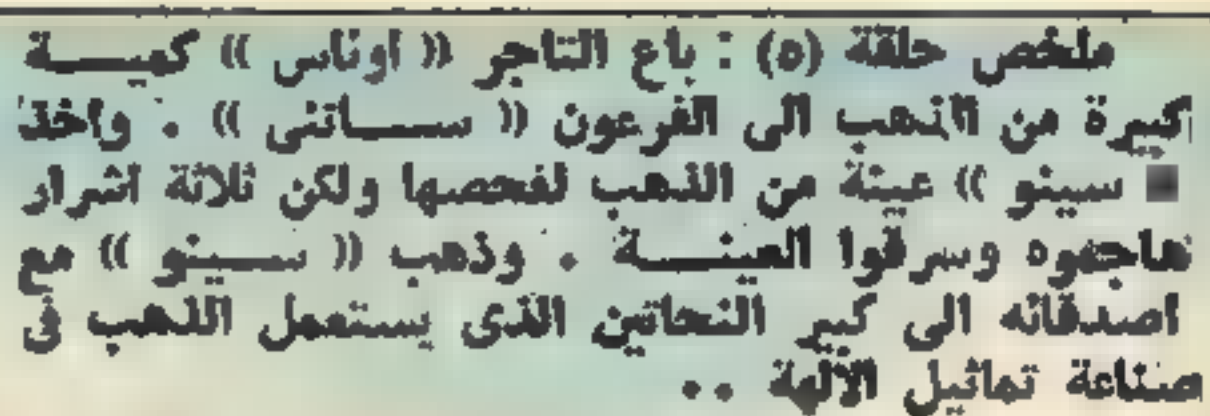 ملخص حلقة (٥) : باع التاجر « اوناس » كميـــة
كبيرة من الذهب الى الفرعون « ســـاتنى » . واخذ
سينو » عينة من الذهب لفحصها ولكن ثلاثة اشرار
هاجموه وسرقوا العينـــة . وذهب « ســـينو » مع
اصدقائه الى كبير النحاتين الذى يستعمل الذهب فى
صناعة تماثيل الالهة ..